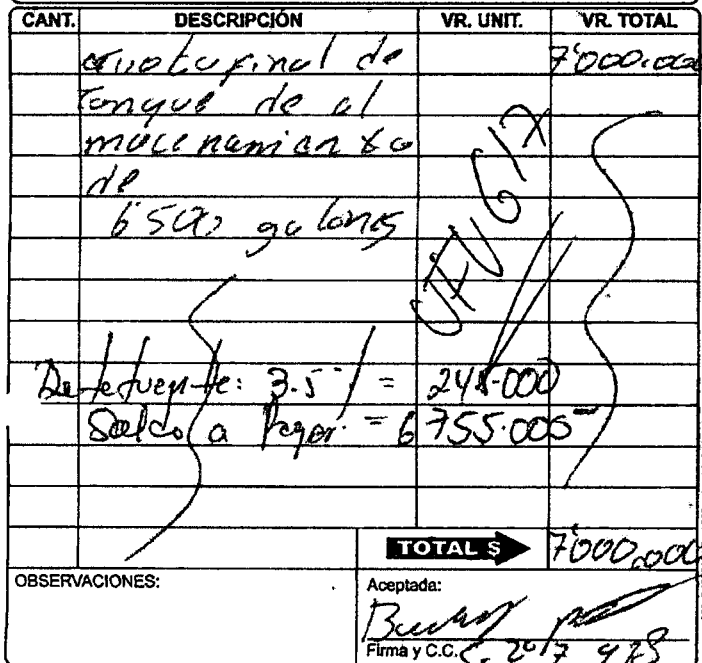 CANT. DESCRIPCIÓN VR. UNIT. VR. TOTAL
cuota final de 7'000.000
tanque de al
macenamiento
de
6500 galones
Retefuente: 3.5% = 245.000
Saldo a pagar = 6755.000
TOTAL $ 7'000.000
OBSERVACIONES:
Aceptada:
Firma y C.C.